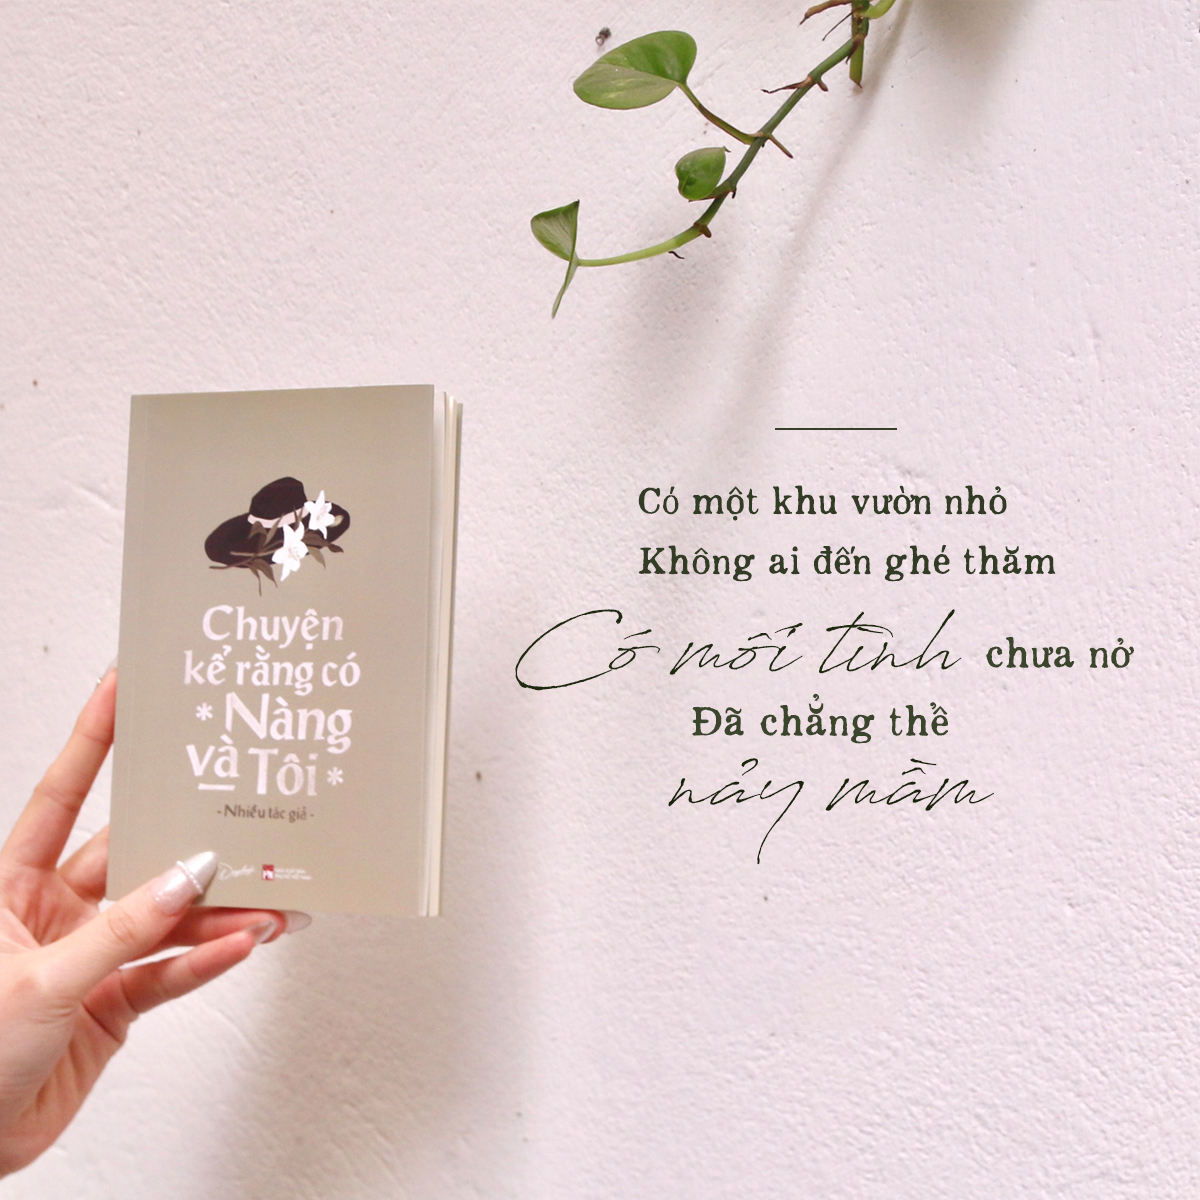 Chuyện
kể rằng có
* Nàng
và Tôi *
- Nhiều tác giả -
Có một khu vườn nhỏ
Không ai đến ghé thăm
Có mối tình chưa nở
Đã chẳng thề
nảy mầm